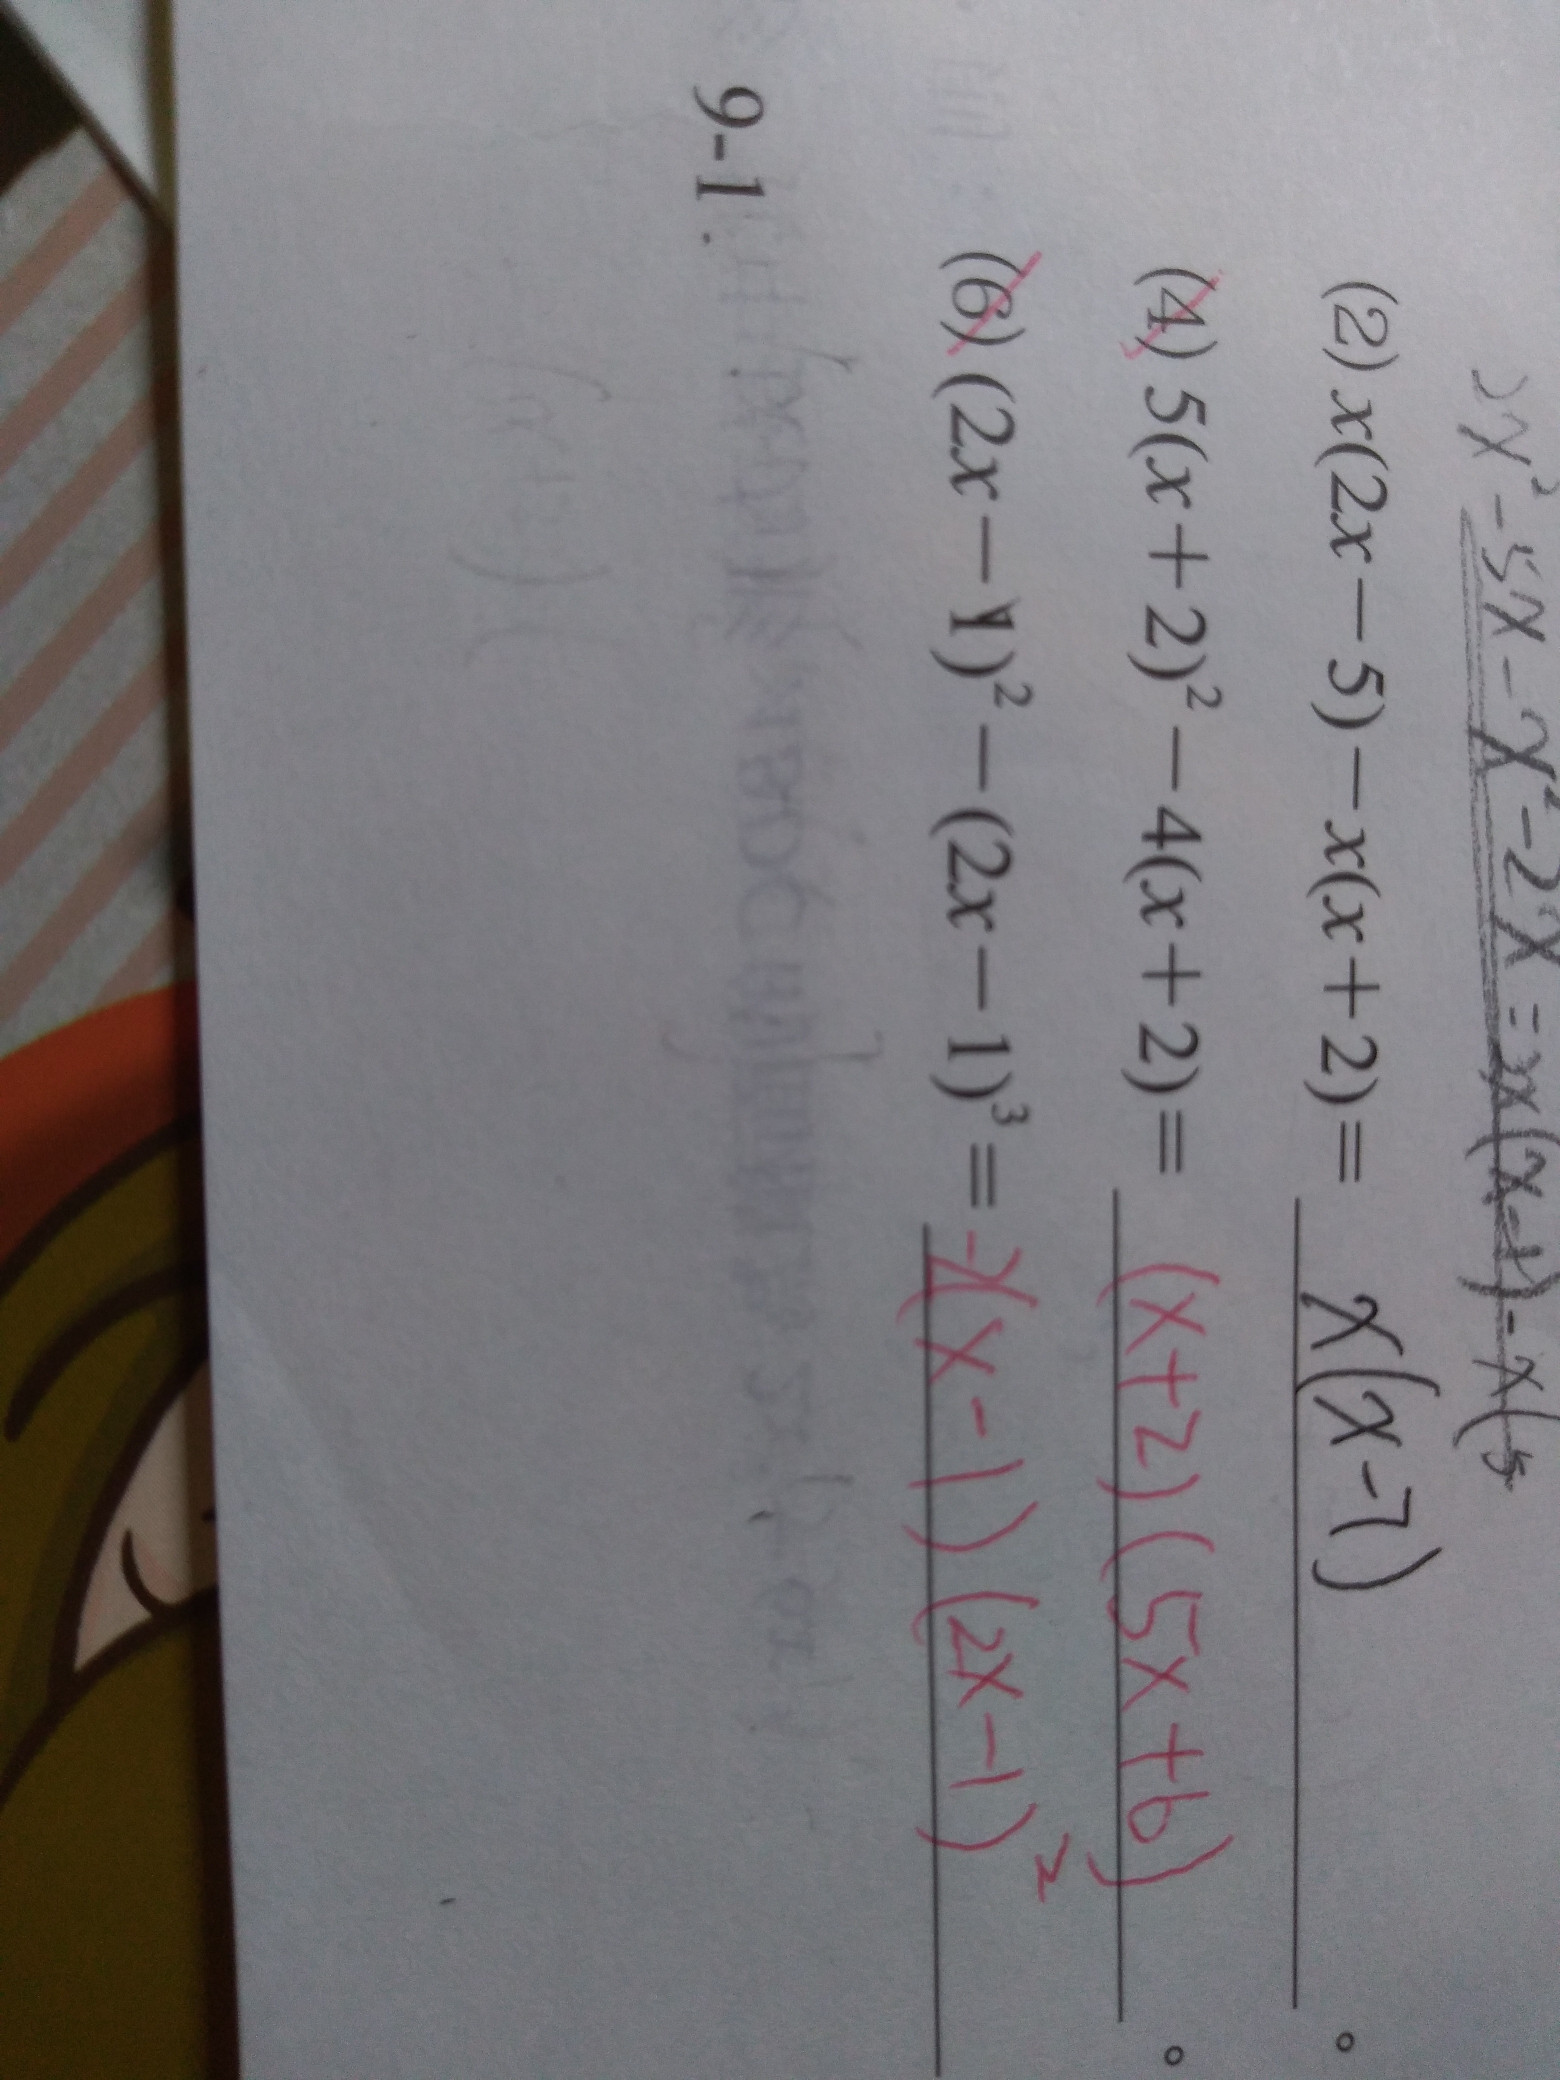 2x² - 5x - x² - 2x = x(x-1) - x(5
(2) x(2x-5)-x(x+2)= x(x-7) 。
(4) 5(x+2)²-4(x+2)= (x+2)(5x+6) 。
(6) (2x-1)²-(2x-1)³= -2(x-1)(2x-1)²
9-1